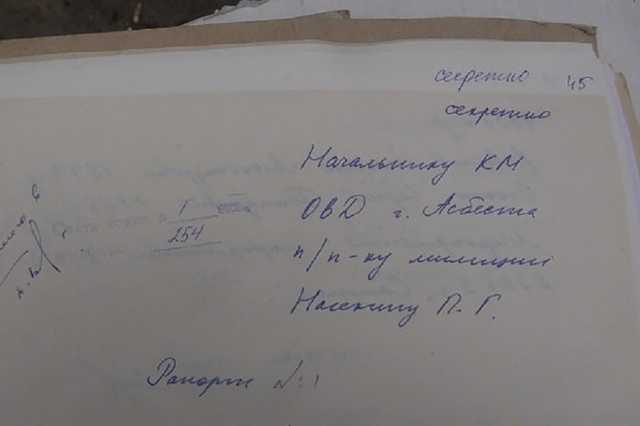 секретно 45
секретно
Начальнику КМ
ОВД г. Асбеста
1
254
п/п-ку милиции
Насекину П.Г.
Рапорт №1